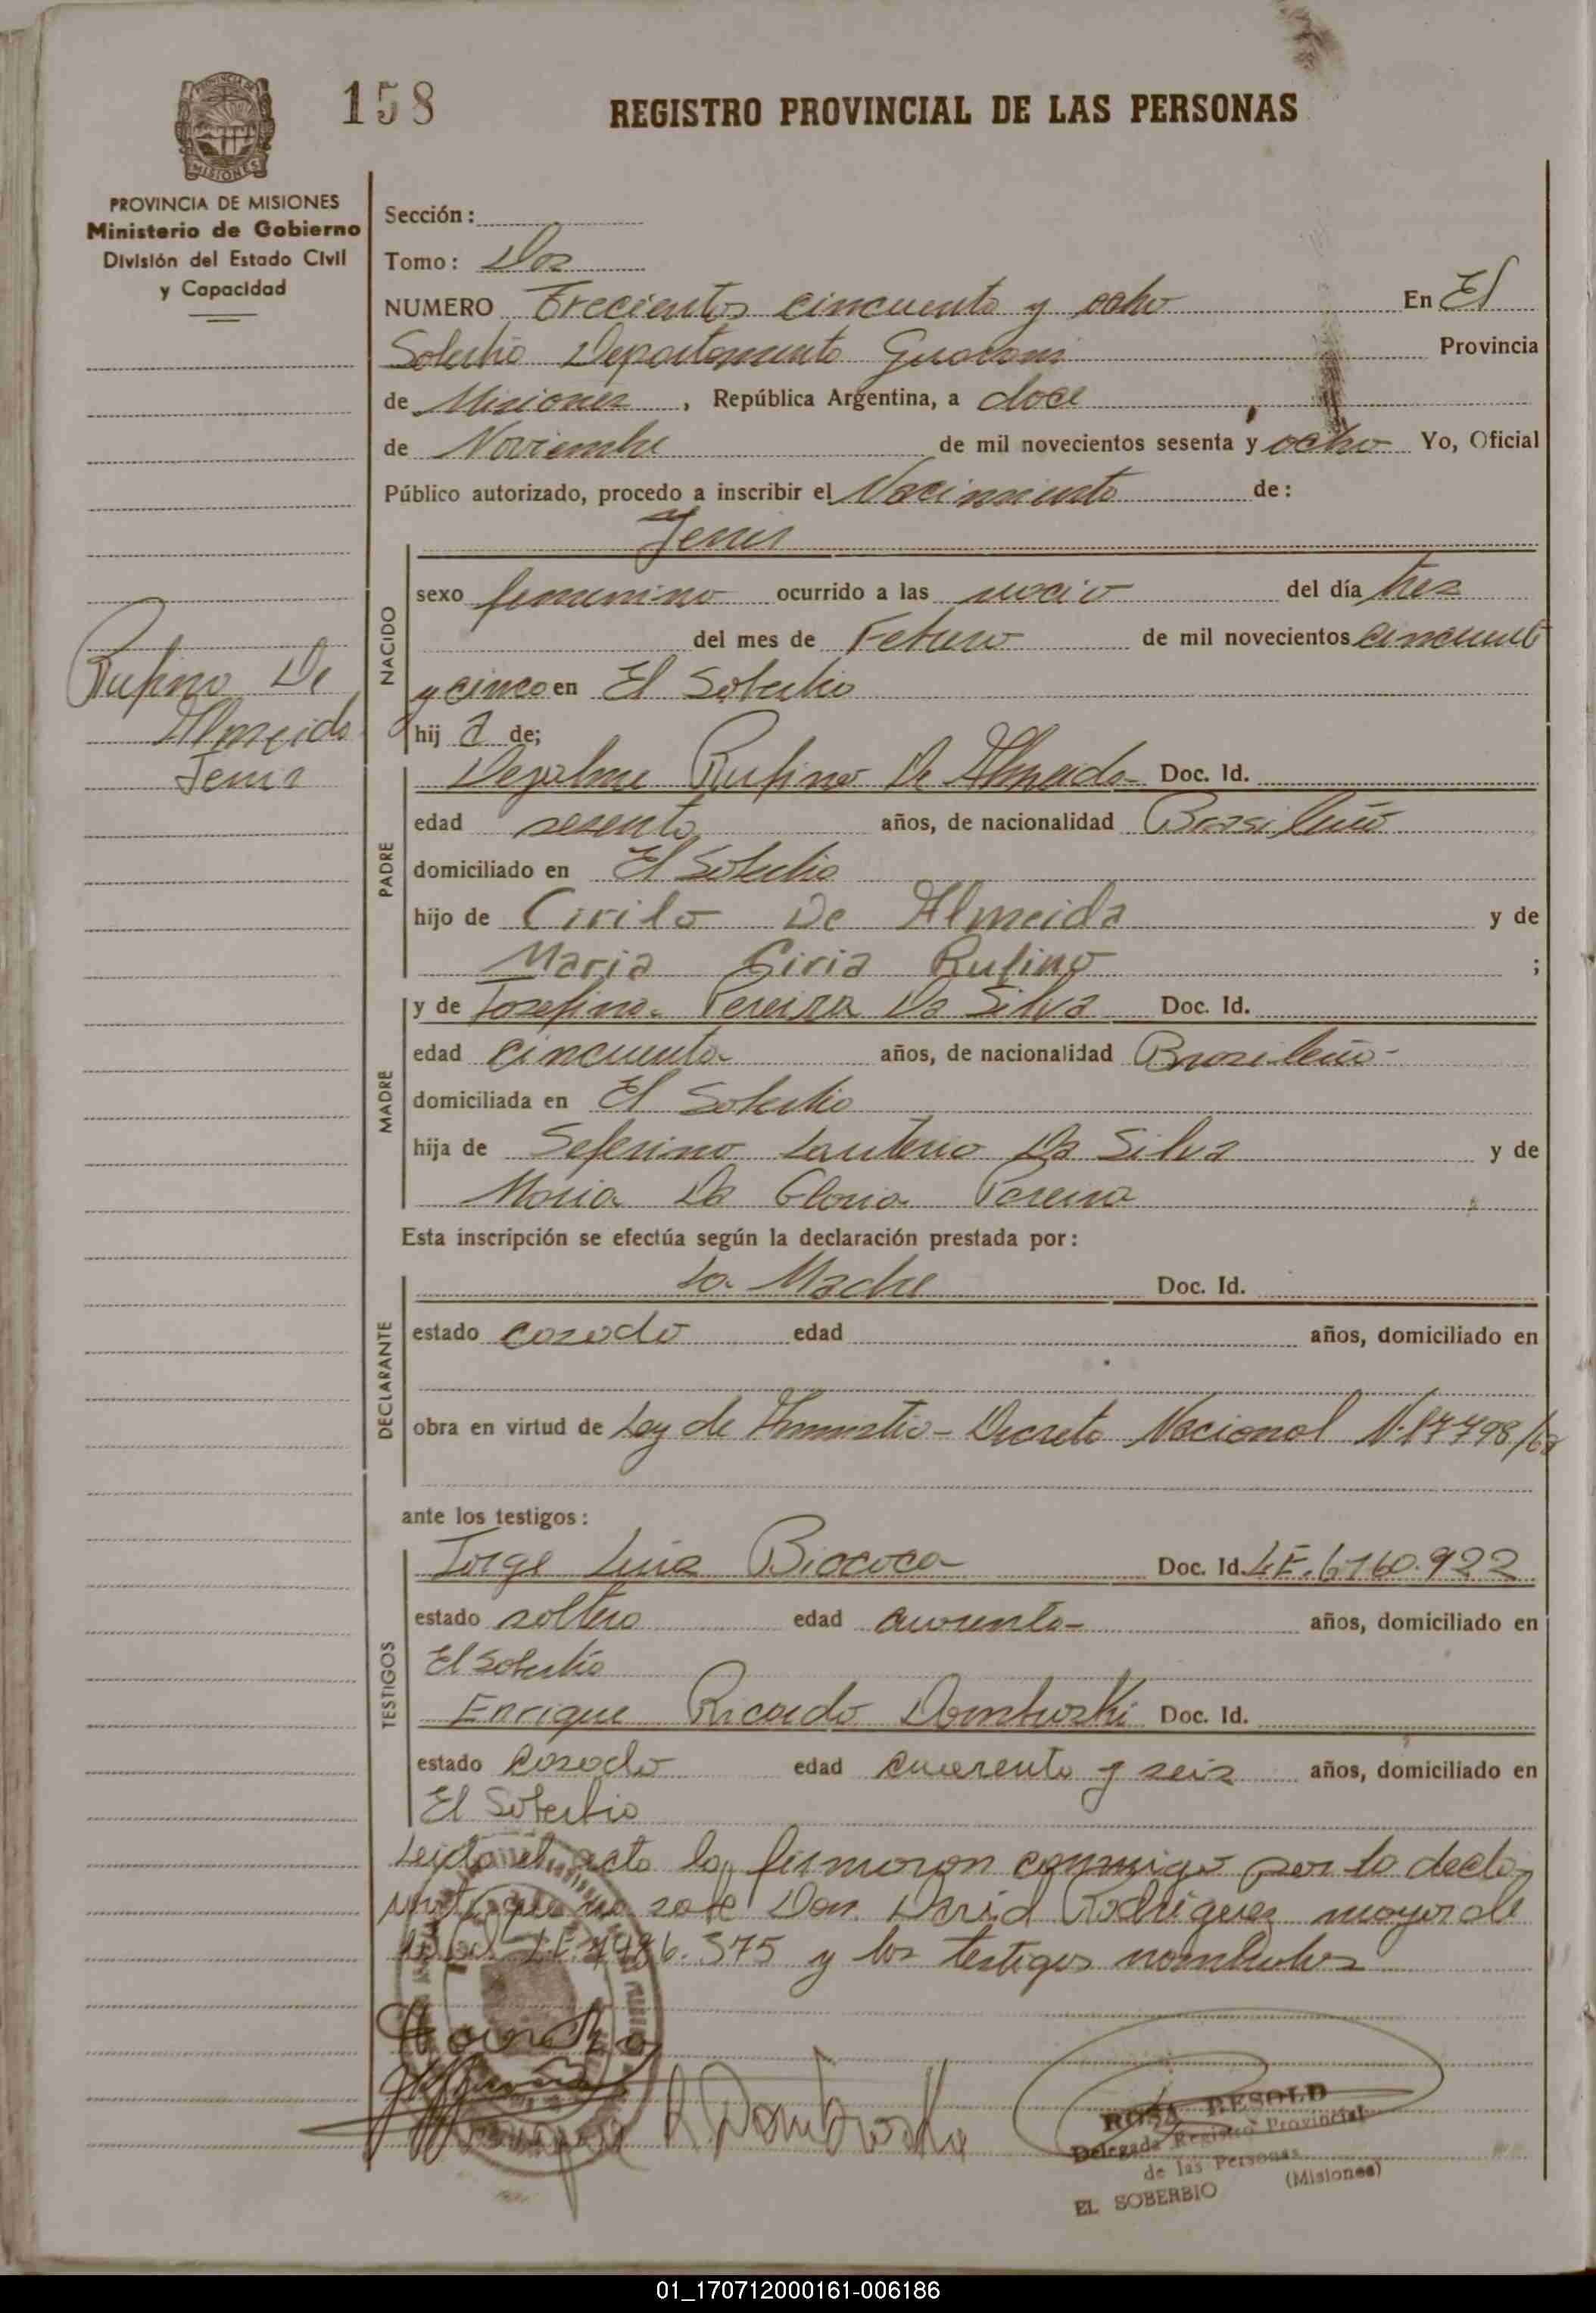 PROVINCIA DE MISIONES
158
REGISTRO PROVINCIAL DE LAS PERSONAS
PROVINCIA DE MISIONES
Ministerio de Gobierno
División del Estado Civil
y Capacidad
Sección:
Tomo: Dos
NUMERO Trecientos cincuenta y ocho En El
Soberbio Departamento Guarani Provincia
de Misiones, República Argentina, a doce
de Noviembre de mil novecientos sesenta y ocho Yo, Oficial
Público autorizado, procedo a inscribir el Nacimiento de:
Jenir
NACIDO
sexo femenino ocurrido a las del día tres
del mes de Febrero de mil novecientos cincuenta
y cinco en El Soberbio
hij a de;
Rufino De
Almeida
Jenir
PADRE
Rufino De Almeida Doc. Id.
edad sesenta años, de nacionalidad Brasileño
domiciliado en El Soberbio
hijo de Cirilo De Almeida y de
Maria Siria Rufino ;
MADRE
y de Josefina Pereira Da Silva Doc. Id.
edad cincuenta años, de nacionalidad Brasileña
domiciliada en El Soberbio
hija de Seferino Lauterio Da Silva y de
Maria Da Gloria Pereira
Esta inscripción se efectúa según la declaración prestada por:
DECLARANTE
La Madre Doc. Id.
estado casada edad años, domiciliado en
obra en virtud de Ley de Amnistia - Decreto Nacional N. 17798/68
ante los testigos:
TESTIGOS
Jorge Luis Biococa Doc. Id. LE. 6760.922
estado soltero edad cuarenta años, domiciliado en
El Soberbio
Enrique Ricardo Dombroski Doc. Id.
estado casado edad cuarenta y seis años, domiciliado en
El Soberbio
Leida el acta la firmaron conmigo por la decla
que no sabe Don David Rodriguez mayor de
375 y los testigos nombrados
R Dombroski
ROSA BESOLD
Delegada Registro Provincial
de las Personas
EL SOBERBIO (Misiones)
01_170712000161-006186